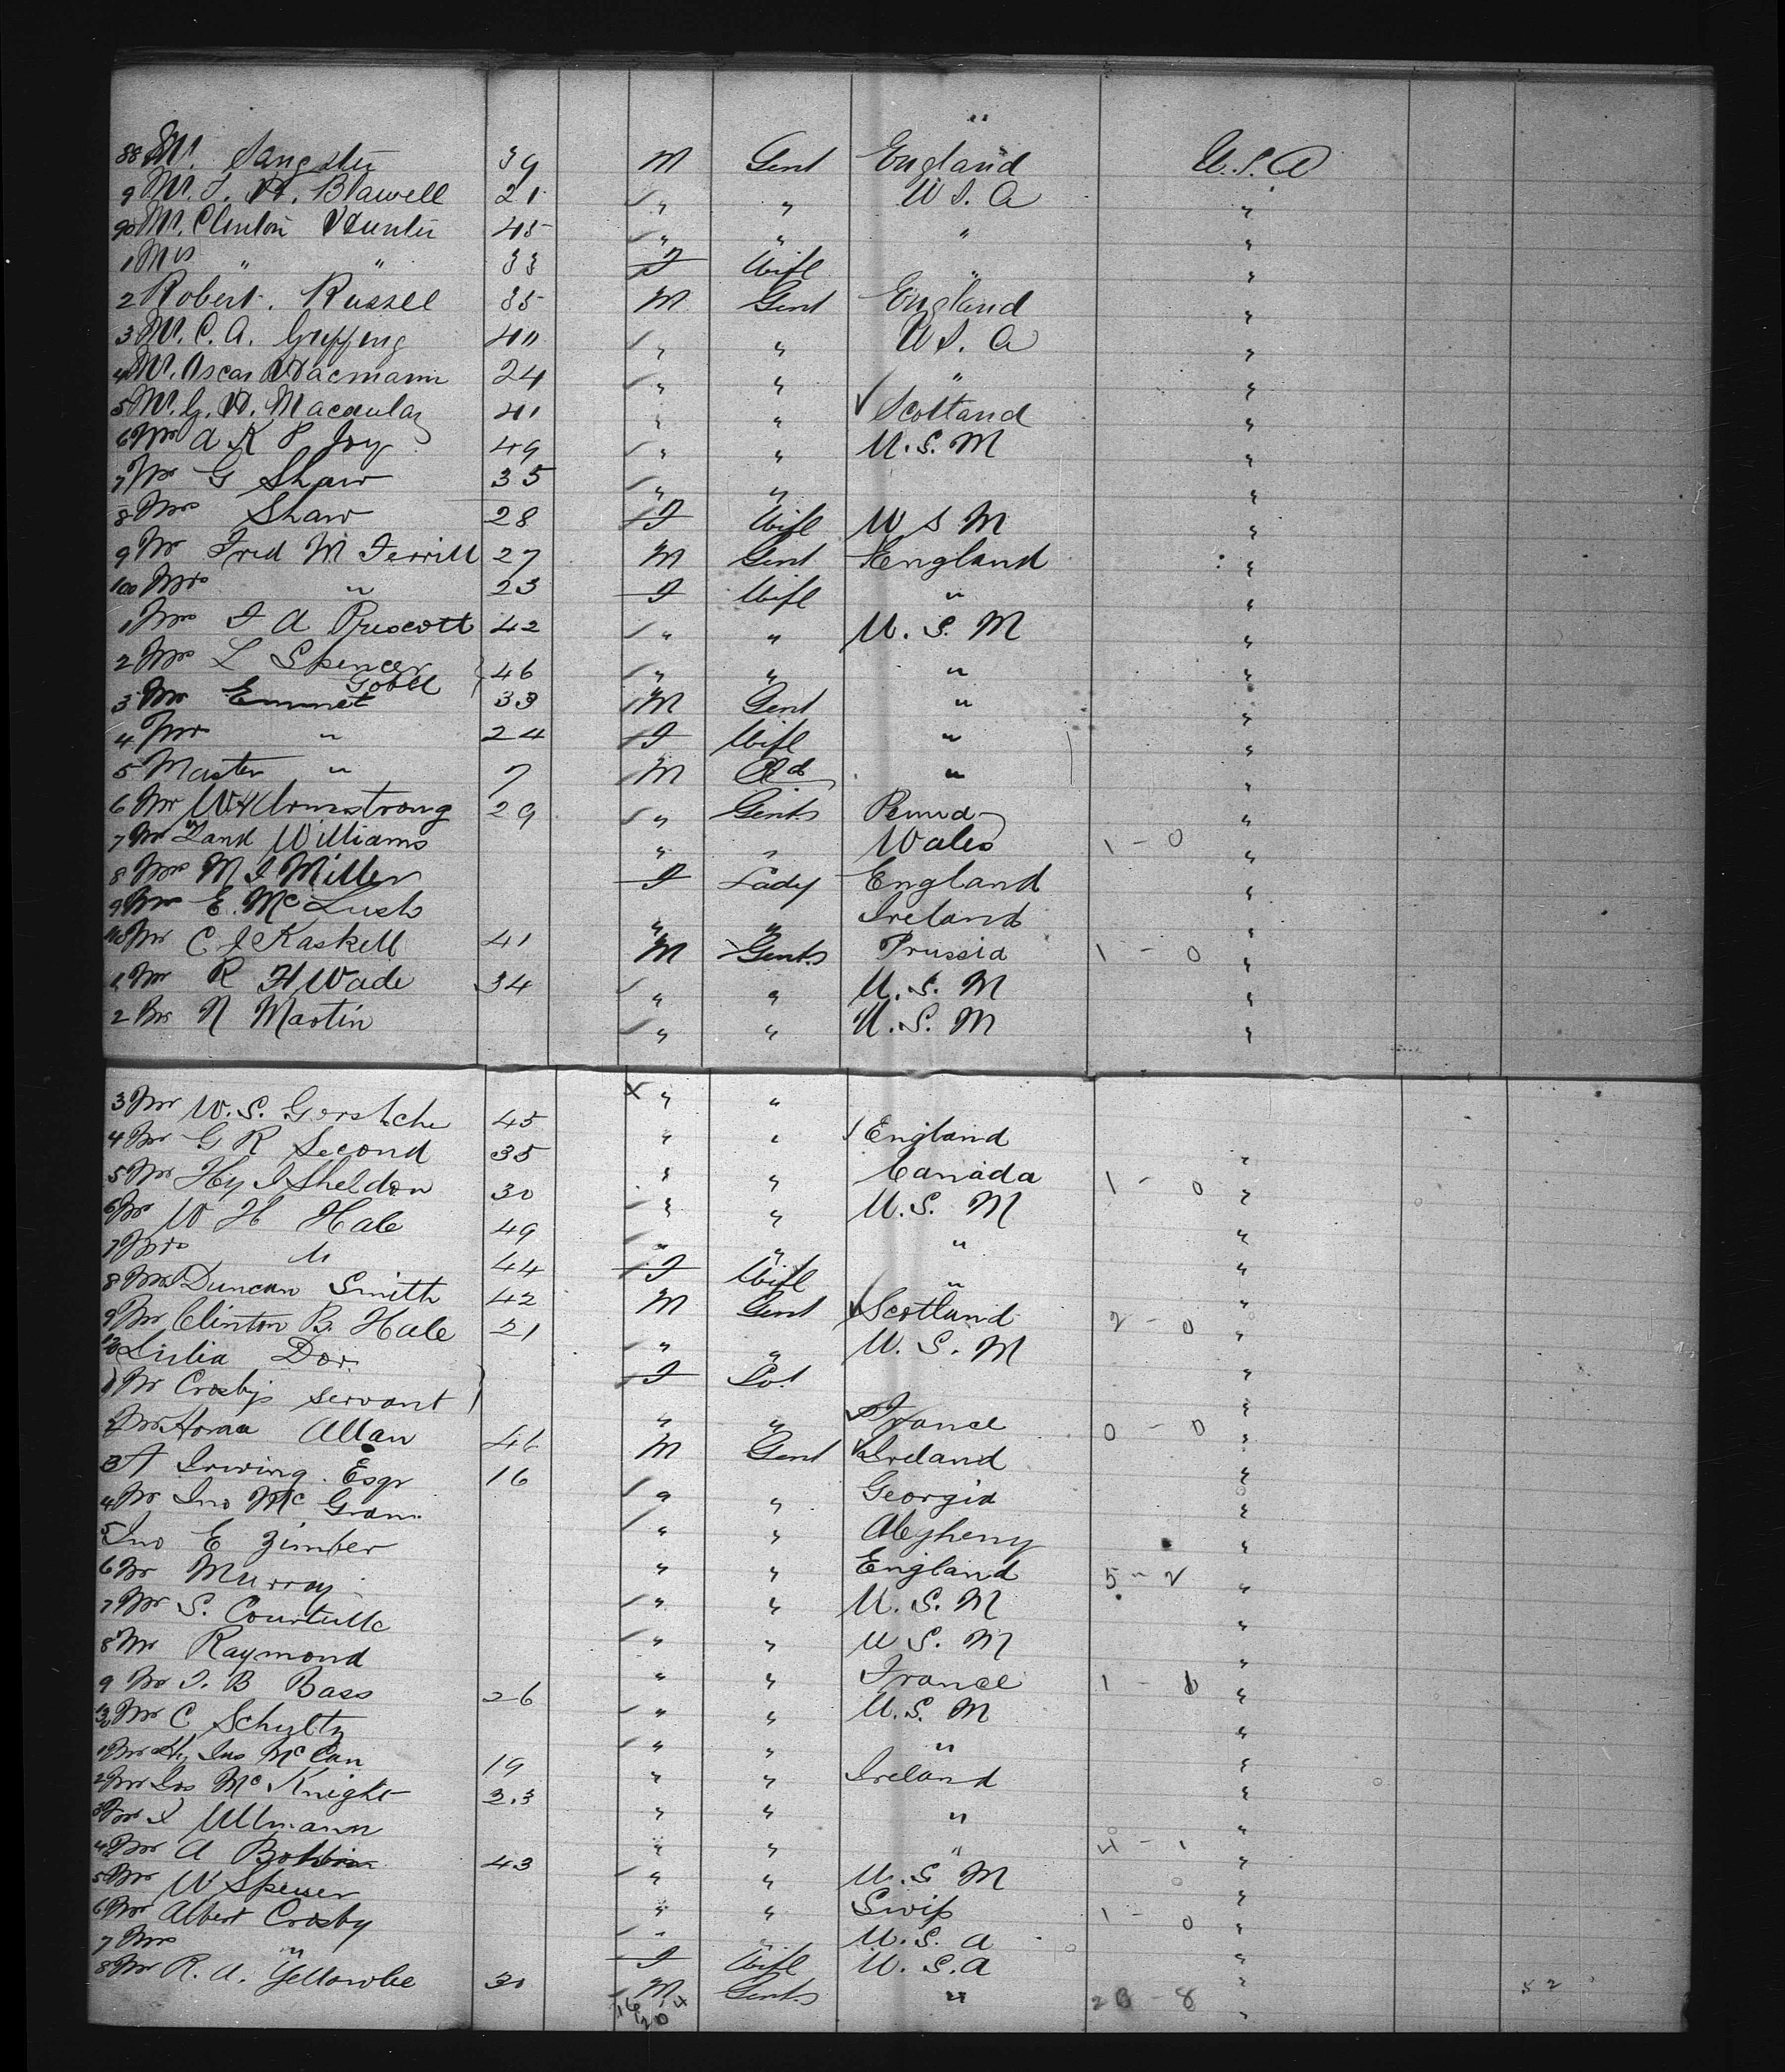 88 Mr. Sangster 39 M Gent England U.S.A
9 Mr. J. H. Blawell 21 " " U S. A "
90 Mr. Clinton Hunter 45 " " " "
1 Mrs " " 33 F Wife " "
2 Robert. Russell 35 M Gent England "
3 Mr. C. A. Griffing 40 " " U S. A "
4 Mr. Oscar Hacmann 24 " " " "
5 Mr. G. H. Macaulay 41 " " Scotland "
6 Mr A K P Joy 49 " " U.S.M "
7 Mr G Shaw 35 " " "
8 Mrs Shaw 28 F Wife U S M "
9 Mr Fred M Ferrill 27 M Gent England "
100 Mrs " 23 F Wife " "
1 Mrs F A Prescott 42 " " U.S.M "
2 Mrs L Spencer 46 " " " "
Gobel
3 Mr Emmet 33 M Gent " "
4 Mrs " 24 F Wife " "
5 Master " 7 M " "
6 Mr W H Armstrong 29 " Gents "
7 Mr Williams " " Wales 1 - 0 "
8 Mrs M J Miller F Lady England "
9 E. McLush " " Ireland "
110 Mr C J Kaskell 41 M Gents Prussia 1 - 0 "
1 Mr R H Wade 34 " " U.S.M "
2 Mr N Martin " " U.S.M "
3 Mr W. S. 45 " "
4 Mr G R Second 35 " " England "
5 Mr Hy J Sheldon 30 " " Canada 1 - 0 "
6 Mr W H Hale 49 " " U.S.M "
7 Mrs " 44 F Wife " "
8 Mr Duncan Smith 42 M Gent Scotland 2 - 0 "
9 Mr Clinton B. Hale 21 " " U.S.M "
120 Julia Dor. F "
1 Mr Crosbys servant " " France 0 - 0 "
2 Mr Allan 46 M Gent Ireland "
3 A Irwing. Esqr 16 " " Georgia "
4 Mr Jno Mc " " Alegheny "
5 Jno E Zimber " " England 5 - 2 "
6 Mr Murray " " U.S.M "
7 Mr S. " " U S. M "
8 Mr Raymond " " France 1 - "
9 Mr J. B Bass 26 " " U.S.M "
30 Mr C Schultz " " " "
1 Mr Jno McCan 19 " " Ireland "
2 Mr Jos McKnight 23 " " " "
3 Mr J Ullmann " " " 4 - 1 "
4 Mr A 43 " " U.S M "
5 Mr W Spencer " " Swiss 1 - 0 "
6 Mr Albert Crosby " " U.S. A "
7 Mrs " F Wife U.S.A "
8 Mr R. A. Yellowlee 30 M Gents " 20 - 8 "
52